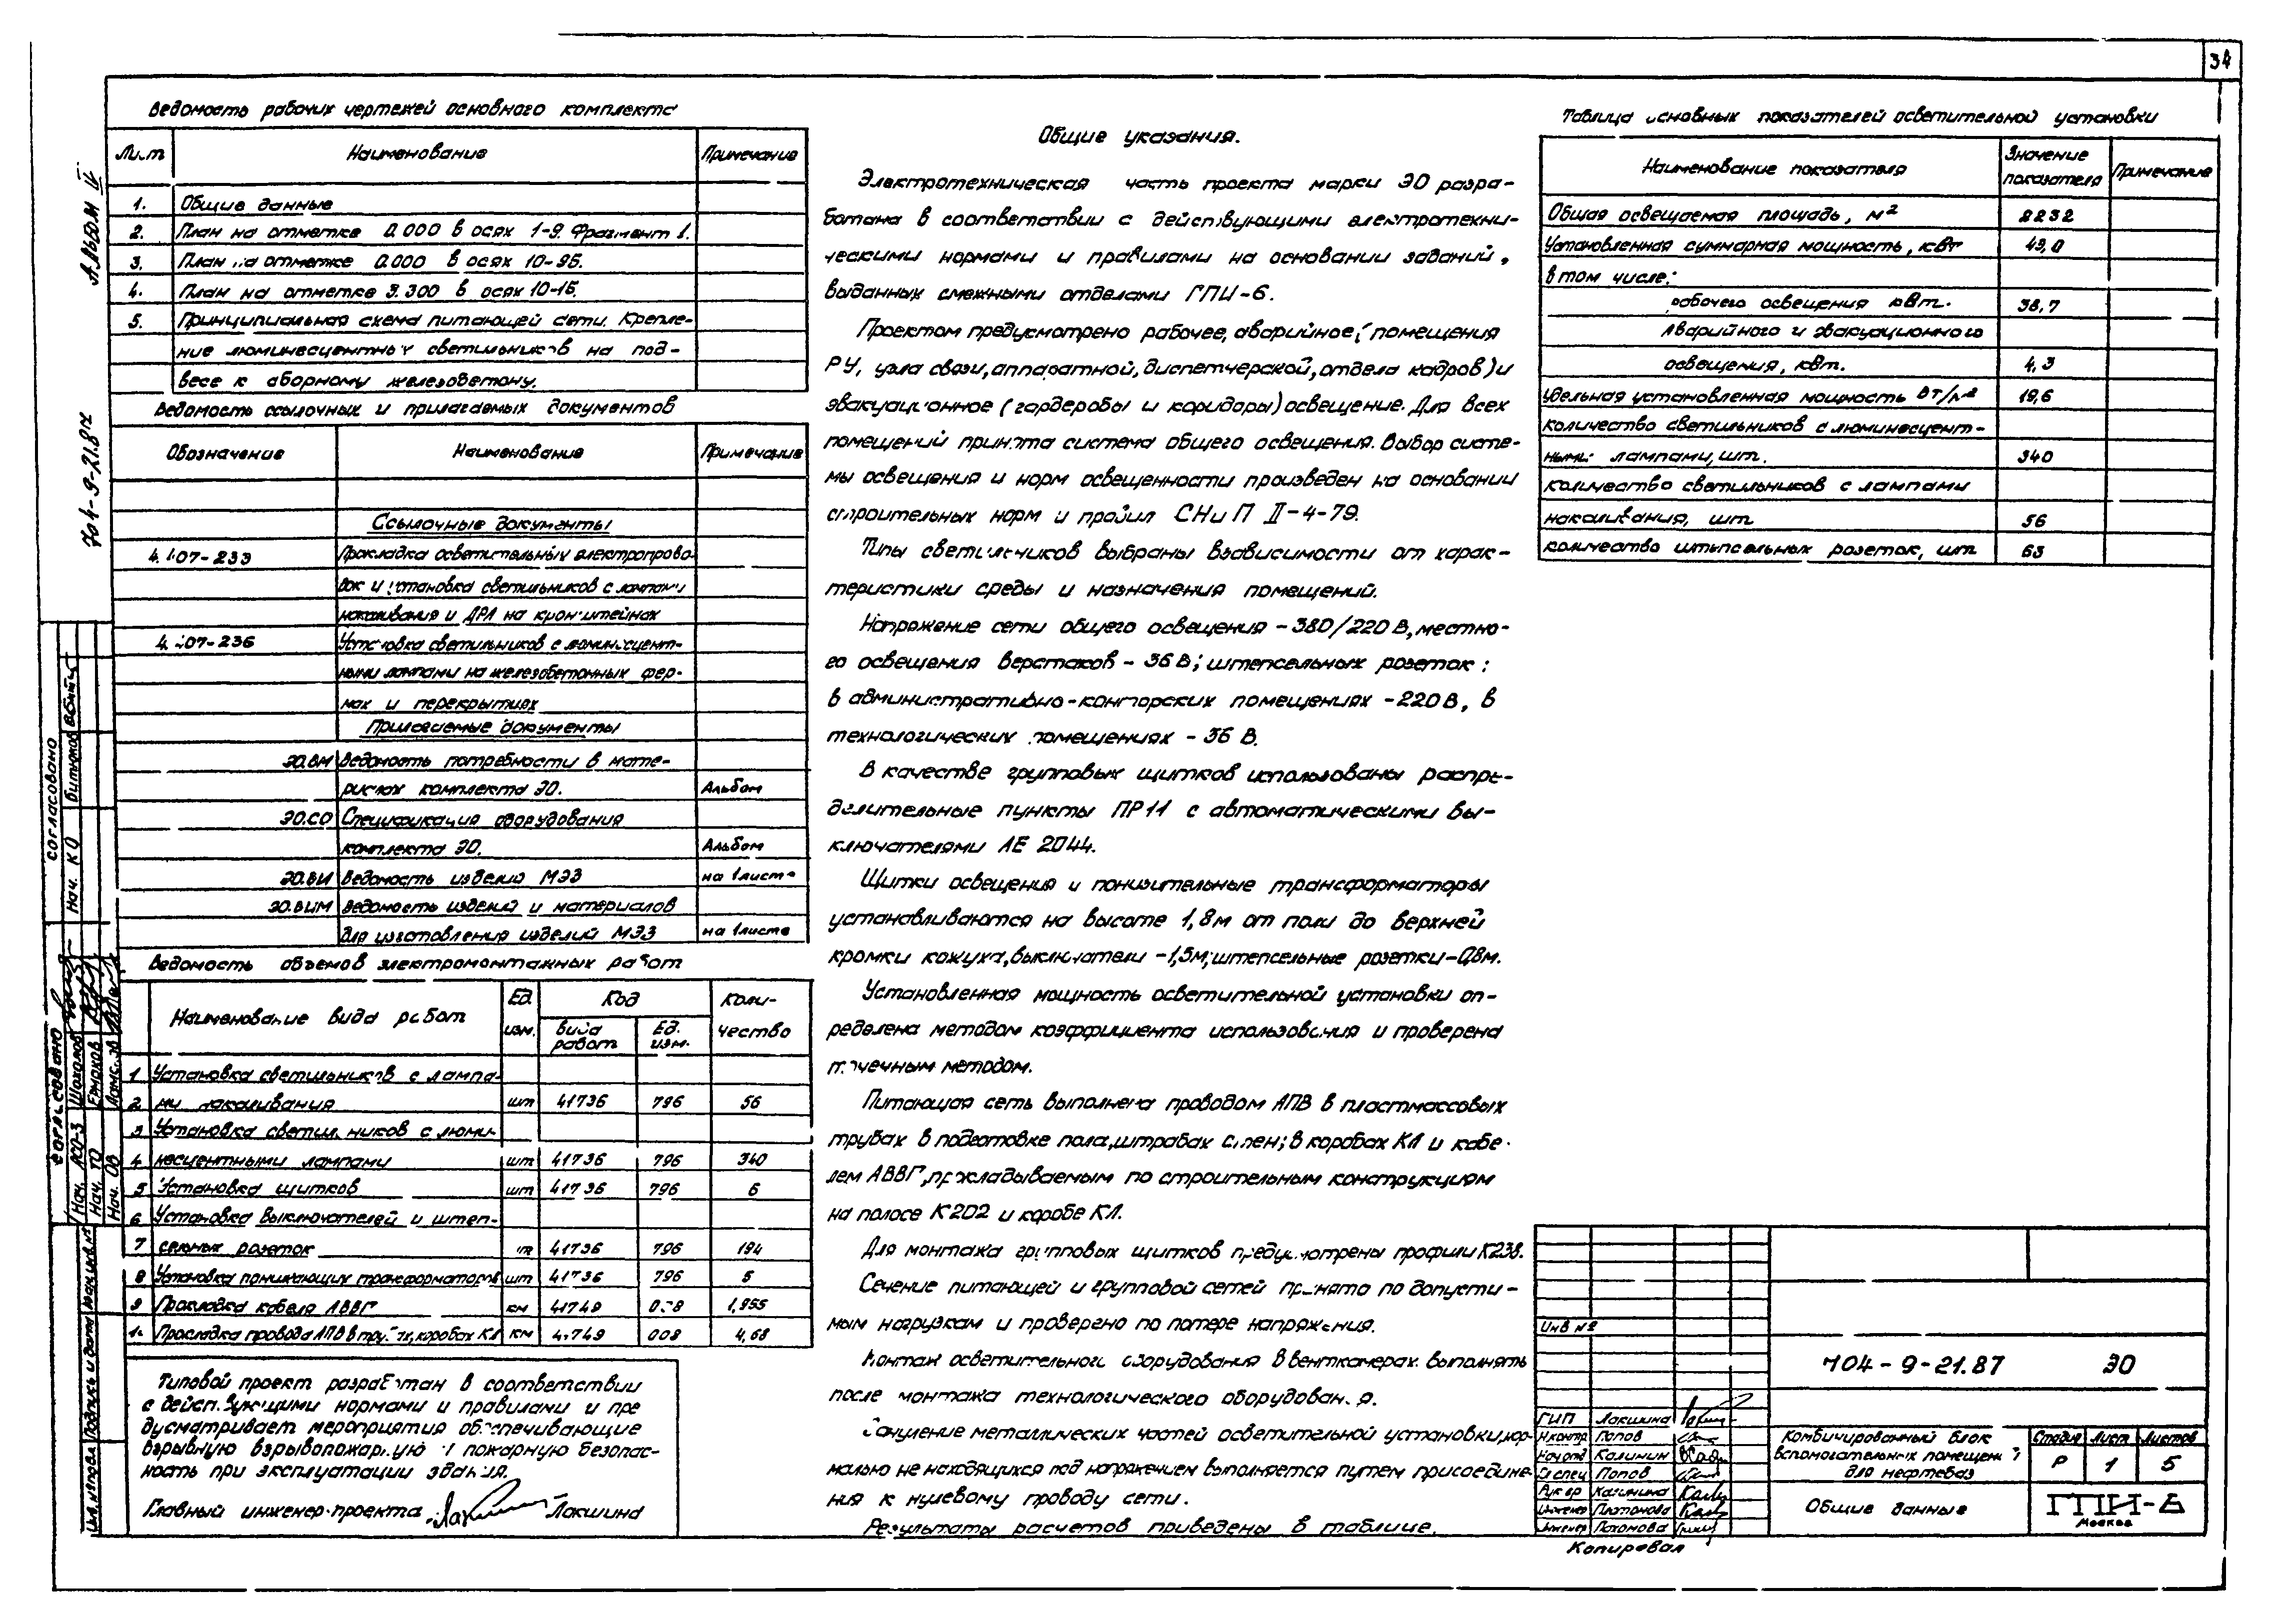 34
Альбом IV
704-9-21.87
Ведомость рабочих чертежей основного комплекта
Лист Наименование Примечание
1. Общие данные
2. План на отметке 0.000 в осях 1-9. Фрагмент 1.
3. План на отметке 0.000 в осях
4. План на отметке 3.300 в осях
5. Принципиальная схема питающей сети. Крепле-
ние люминесцентных светильников на под-
весе к сборному железобетону.
Ведомость ссылочных и прилагаемых документов
Обозначение Наименование Примечание
Ссылочные документы
4.407-233 Прокладка осветительных электропрово-
док и установка светильников с лампами
накаливания и ДРЛ на кронштейнах
4.407-236 Установка светильников с люминесцент-
ными лампами на железобетонных фер-
мах и перекрытиях
Прилагаемые документы
ЭО.ВМ Ведомость потребности в мате-
риалах комплекта ЭО. Альбом
ЭО.СО Спецификация оборудования
комплекта ЭО. Альбом
ЭО.ВИ Ведомость изделий МЭЗ на 1 листе
ЭО.ВИМ Ведомость изделий и материалов
для изготовления изделий МЭЗ на 1 листе
Ведомость объемов электромонтажных работ
Наименование вида работ Ед. изм. Код Коли-
вида работ Ед. изм. чество
1 Установка светильников с лампа-
2 ми накаливания шт 41736 796 56
3 Установка светильников с люми-
4 несцентными лампами шт 41736 796 340
5 Установка щитков шт 41736 796 6
6 Установка выключателей и штеп-
7 сельных розеток шт 41736 796 194
8 Установка понижающих трансформаторов шт 41736 796 5
9 Прокладка кабеля АВВГ км 41749 008 1,955
10 Прокладка провода АПВ в трубах, коробах КЛ км 41749 008 4,68
Типовой проект разработан в соответствии
с действующими нормами и правилами и пре
дусматривает мероприятия обеспечивающие
взрывную взрывопожарную и пожарную безопас-
ность при эксплуатации здания.
Главный инженер проекта Лакшина
Общие указания.
Электротехническая часть проекта марки ЭО разра-
ботана в соответствии с действующими электротехни-
ческими нормами и правилами на основании заданий,
выданных смежными отделами ГПИ-6.
Проектом предусмотрено рабочее, аварийное (помещения
РУ, узла связи, аппаратной, диспетчерской, отдела кадров) и
эвакуационное (гардеробы и коридоры) освещение. Для всех
помещений принята система общего освещения. Выбор систе-
мы освещения и норм освещенности произведен на основании
строительных норм и правил СНиП II-4-79.
Типы светильников выбраны взависимости от харак-
теристики среды и назначения помещений.
Напряжение сети общего освещения - 380/220 В, местно-
го освещения верстаков - 36 В; штепсельных розеток:
в административно-конторских помещениях - 220 В, в
технологических помещениях - 36 В.
В качестве групповых щитков использованы распре-
делительные пункты ПР11 с автоматическими вы-
ключателями АЕ 2044.
Щитки освещения и понизительные трансформаторы
устанавливаются на высоте 1,8м от пола до верхней
кромки кожуха, выключатели - 1,5м; штепсельные розетки - 0,8м.
Установленная мощность осветительной установки оп-
ределена методом коэффициента использования и проверена
точечным методом.
Питающая сеть выполнена проводом АПВ в пластмассовых
трубах в подготовке пола, штрабах стен; в коробах КЛ и кабе-
лем АВВГ, прокладываемым по строительным конструкциям
на полосе К202 и коробе КЛ.
Для монтажа групповых щитков предусмотрены профили К238.
Сечение питающей и групповой сетей принято по допусти-
мым нагрузкам и проверено по потере напряжения.
Монтаж осветительного оборудования в венткамерах выполнять
после монтажа технологического оборудования.
Зануление металлических частей осветительной установки, нор-
мально не находящихся под напряжением выполняется путем присоедине-
ния к нулевому проводу сети.
Результаты расчетов приведены в таблице.
Таблица основных показателей осветительной установки
Наименование показателя Значение показателя Примечание
Общая освещаемая площадь, м² 2232
Установленная суммарная мощность, кВт 43,0
в том числе:
рабочего освещения кВт. 38,7
аварийного и эвакуационного
освещения, кВт. 4,3
Удельная установленная мощность Вт/м² 19,6
Количество светильников с люминесцент-
ными лампами, шт. 340
Количество светильников с лампами
накаливания, шт 56
Количество штепсельных розеток, шт 63
Инв №
704-9-21.87 ЭО
ГИП Лакшина
Н.контр Попов
Нач отд Калинин
Гл спец Попов
Рук гр Калинина
Инженер Платонова
Инженер Пахомова
Комбичированный блок
вспомогательных помещений
для нефтебаз
Стадия Лист Листов
Р 1 5
Общие данные
ГПИ-6
Москва
Копировал
Согласовано
Нач. КО Битюков
Согласовано
Нач. АСО-3 Шахалов
Нач. ТО Ермаков
Нач. ОВ
Инв. № подл Подпись и дата Взам. инв. №